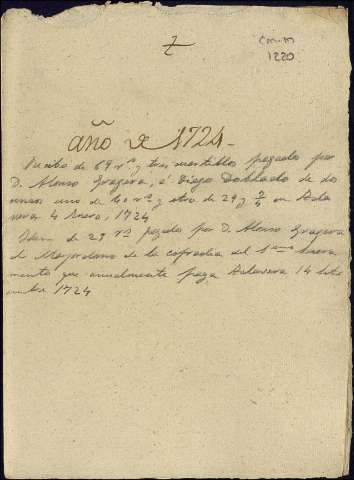 7
CM-M
1220
año de 1724-
Recibo de 69 rˢ y tres cuartillos pagados por
D. Alonso Gragera, á Diego Doblado de dos
uno de 40 rˢ y otro de 29 y 3/4 en
4 Enero, 1724
Idem de 29 rˢ pagados por D. Alonso Gragera
al Mayordomo de la cofradia del Sᵐᵒ Sacra
mento que anualmente paga Talavera 14 Seti
embre 1724